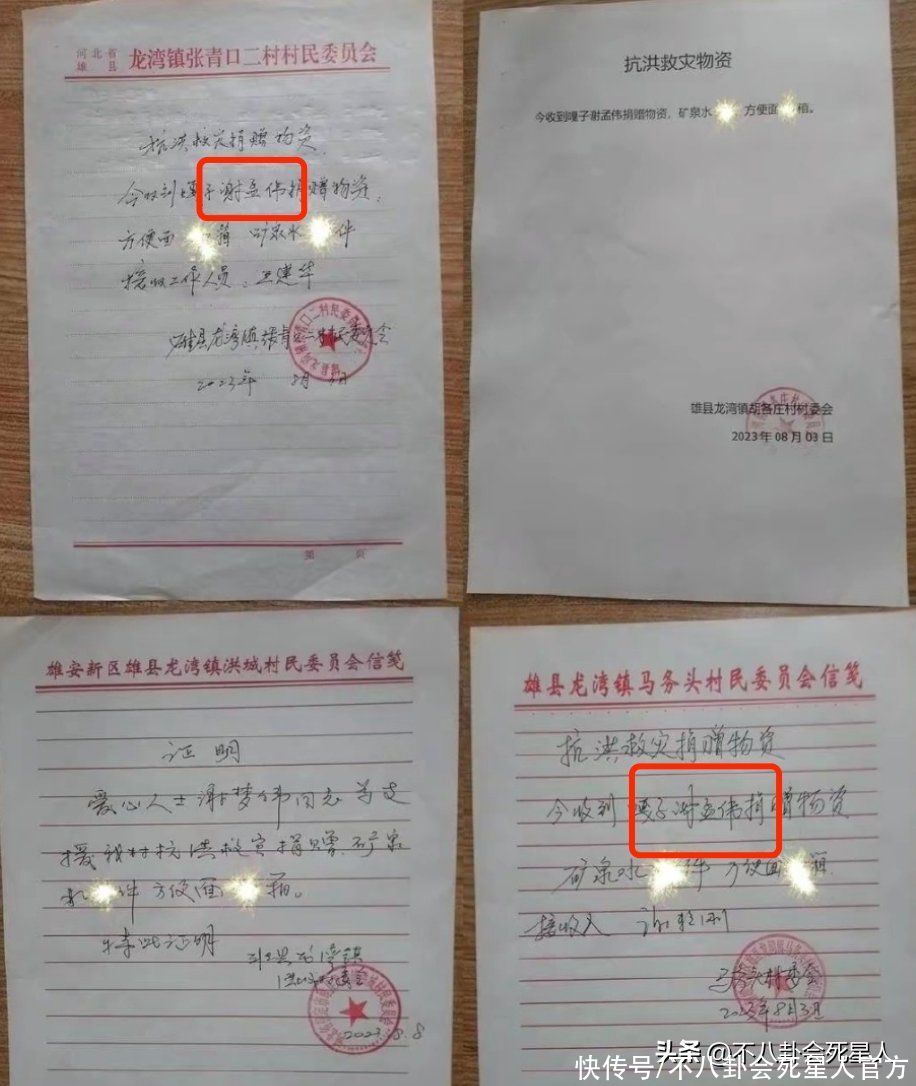 河北省
雄县
龙湾镇张青口二村村民委员会
抗洪救灾捐赠物资
今收到嘎子谢孟伟捐赠物资,
方便面 箱 矿泉水 件
接收工作人员:王建华
雄县龙湾镇张青口二村村民委员会
2023年 8月3日
第 页
抗洪救灾物资
今收到嘎子谢孟伟捐赠物资,矿泉水 方便面 箱。
雄县龙湾镇胡各庄村村委会
2023年08月03日
雄安新区雄县龙湾镇洪城村民委员会信笺
证明
爱心人士谢梦伟同志为支
援我村抗洪救灾捐赠矿泉
水 件 方便面 箱。
特此证明
雄县龙湾镇
洪城村委会
2023.8.8
雄县龙湾镇马务头村民委员会信笺
抗洪救灾捐赠物资
今收到 嘎子谢孟伟捐赠物资
矿泉水 件 方便面 箱
接收人
马务头村委会
2023年8月3日
头条@不八卦会死星人
快传号/不八卦会死星人官方